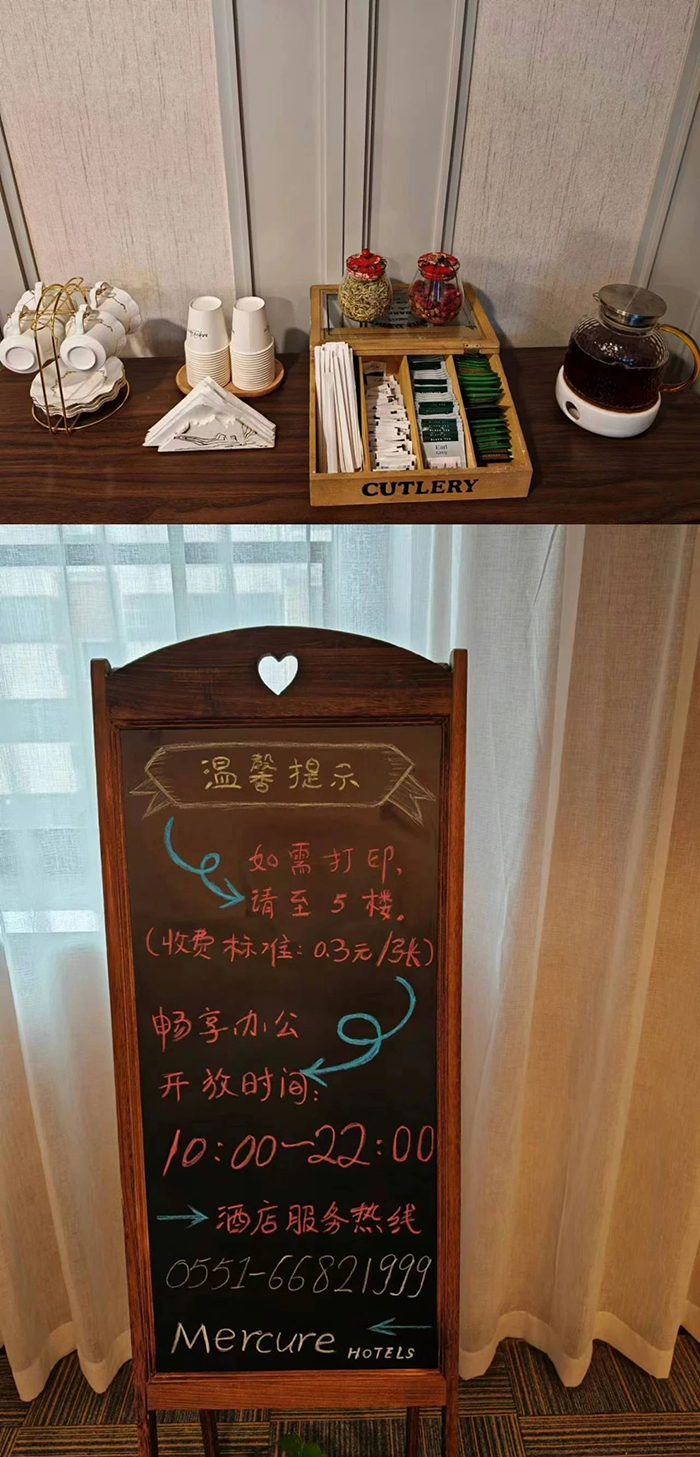 CUTLERY
Earl
Grey
温馨提示
如需打印,
请至5楼。
(收费标准:0.3元/张)
畅享办公
开放时间:
10:00—22:00
酒店服务热线
0551-66821999
Mercure HOTELS